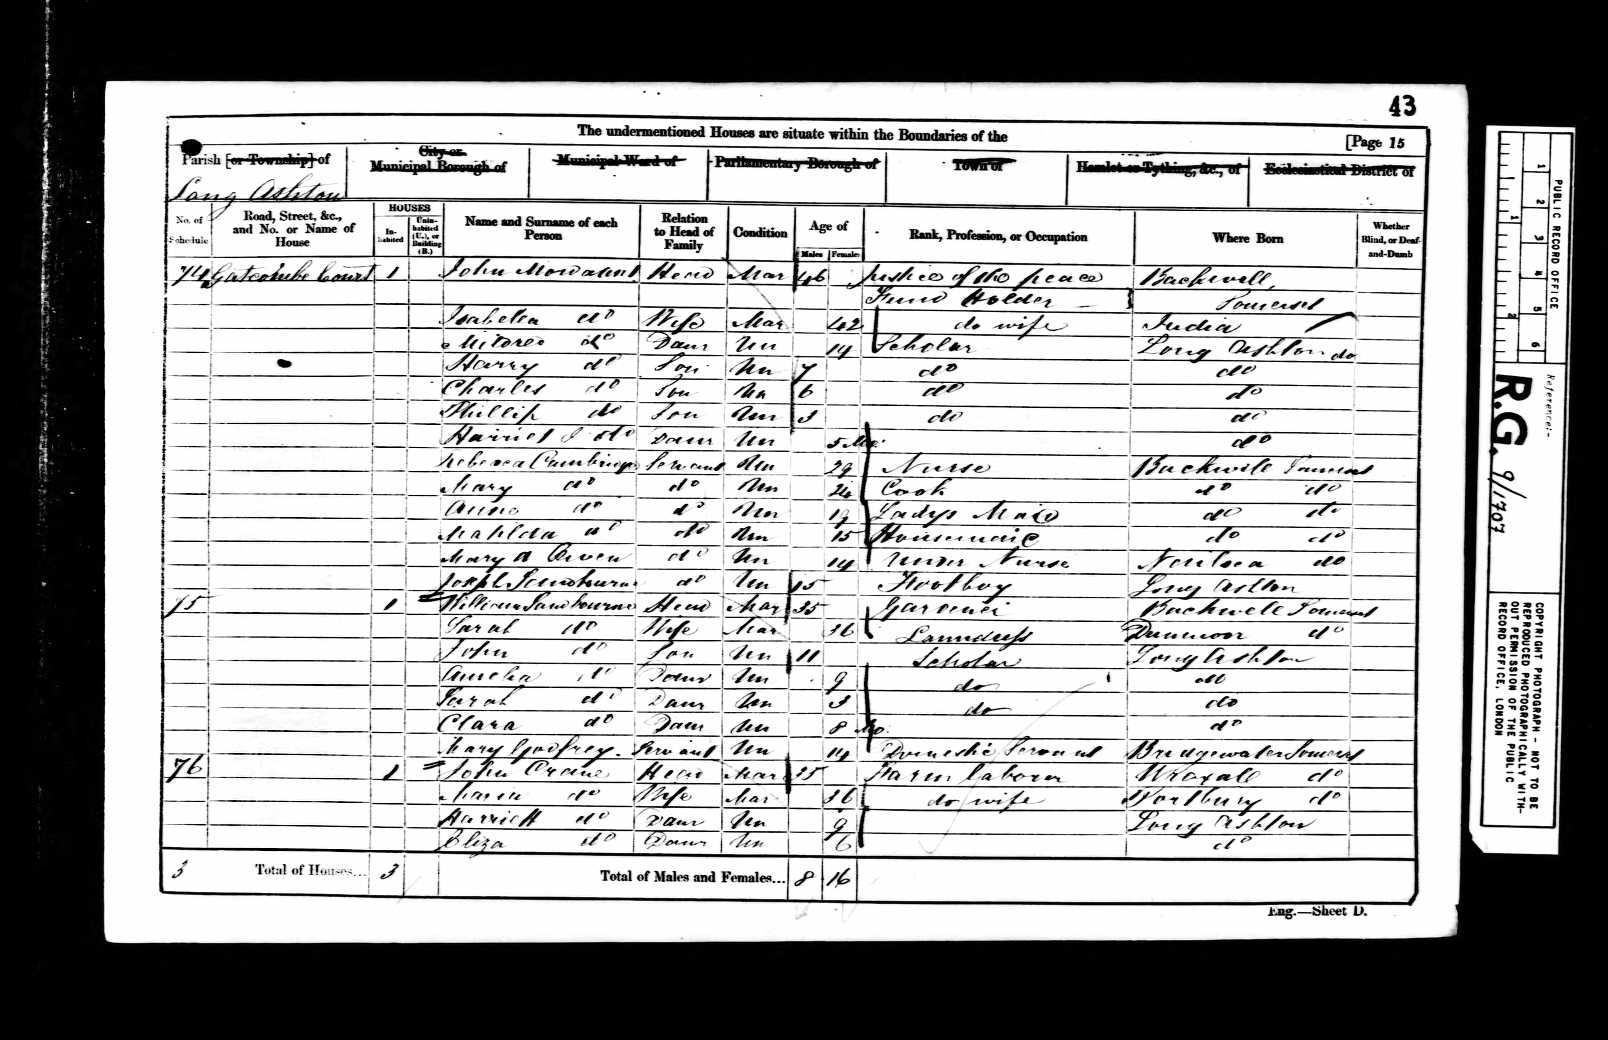 43
The undermentioned Houses are situate within the Boundaries of the
[Page 15
Parish [or Township] of
City or Municipal Borough of
Municipal Ward of
Parliamentary Borough of
Town of
Hamlet or Tything, &c., of
Ecclesiastical District of
Long Ashton
No. of Schedule
Road, Street, &c., and No. or Name of House
HOUSES
In-habited
Unin-habited (U.), or Building (B.)
Name and Surname of each Person
Relation to Head of Family
Condition
Age of
Males
Females
Rank, Profession, or Occupation
Where Born
Whether Blind, or Deaf-and-Dumb
74 Gatcombe Court 1 John Mordaunt Head Mar 46 Justice of the peace Backwell,
Fund Holder Somerset
Isabella do Wife Mar 42 do wife India
Mildred do Daur Un 14 Scholar Long Ashton do
Harry do Son Un 7 do do
Charles do Son Un 6 do do
Phillip do Son Un 3 do do
Harriet J do Daur Un 5 Mo do
Rebecca Cambridge Servant Un 29 Nurse Backwell Somerset
Mary do do Un 24 Cook do do
Anne do do Un 19 Ladys Maid do do
Matilda do do Un 15 Housemaid do do
Mary A Owen do Un 14 Under Nurse Nailsea do
Joseph Sambourne do Un 15 Footboy Long Ashton
75 1 William Sambourne Head Mar 35 Gardener Backwell Somerset
Sarah do Wife Mar 36 Laundress Dunmoor do
John do Son Un 11 Scholar Long Ashton
Amelia do Daur Un 9 do do
Sarah do Daur Un 3 do do
Clara do Daur Un 8 Mo do
Mary Godfrey Servant Un 14 Domestic Servant Bridgewater Somerset
76 1 John Crane Head Mar 35 Farm labourer Wraxall do
Maria do Wife Mar 36 do wife Portbury do
Harriett do Daur Un 9 Long Ashton
Eliza do Daur Un 6 do
3 Total of Houses... 3 Total of Males and Females... 8 16
Eng.—Sheet D.
PUBLIC RECORD OFFICE
1 2 3 4 5 6
1 2
Reference:-
R.G. 9/1707
COPYRIGHT PHOTOGRAPH - NOT TO BE
REPRODUCED PHOTOGRAPHICALLY WITH-
OUT PERMISSION OF THE PUBLIC
RECORD OFFICE, LONDON